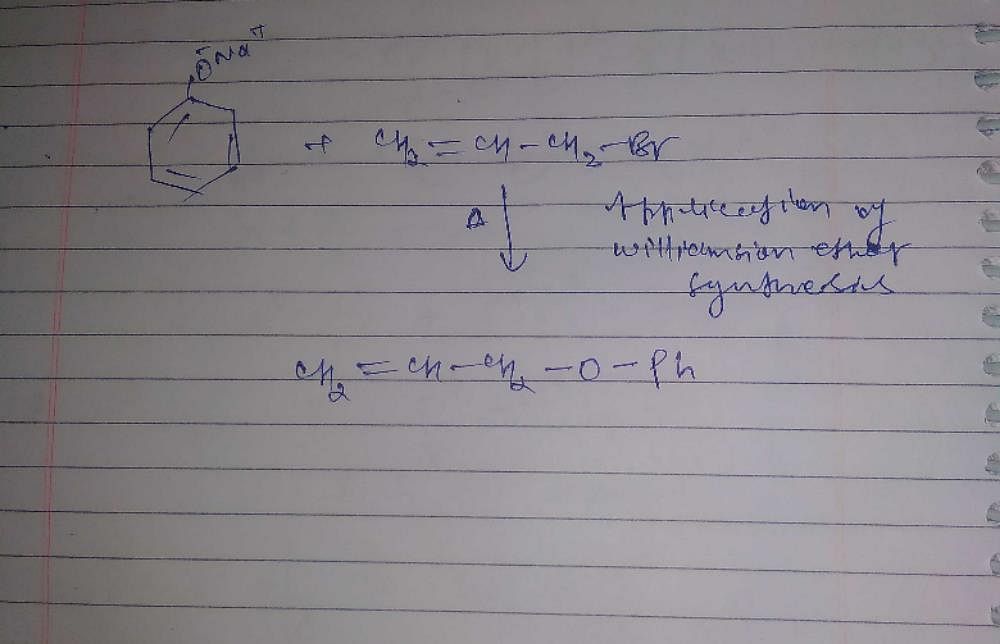 ŌNa⁺
+ CH₂=CH-CH₂-Br
Δ
Application of
williamsion ether
synthesis
CH₂=CH-CH₂-O-Ph